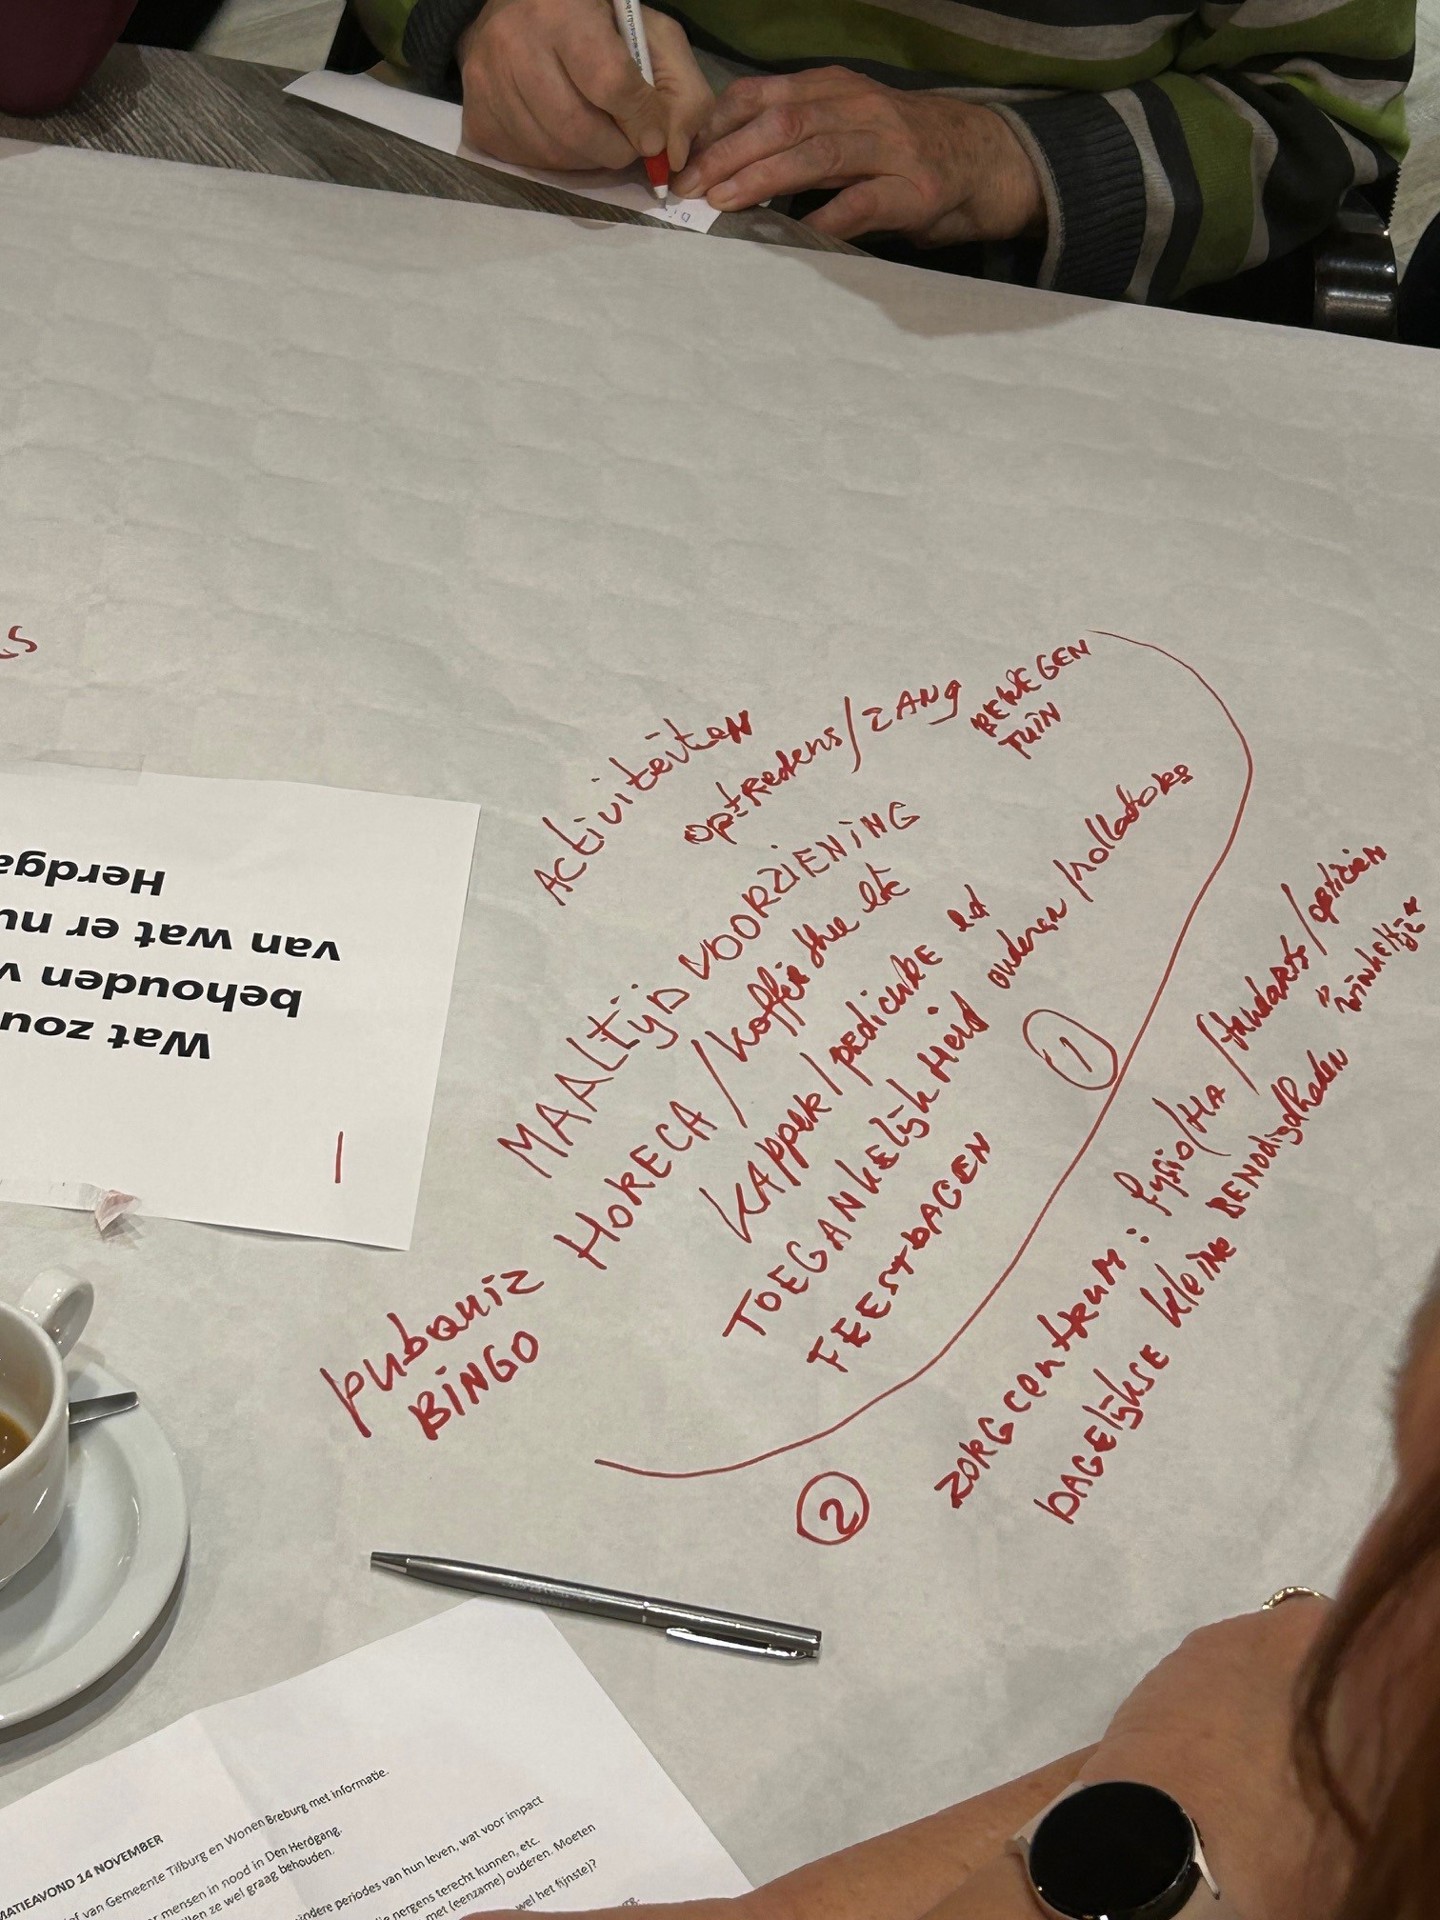 Activiteiten
optredens/ZANG
BEWEGEN
TUIN
MAALTIJD VOORZIENING
HORECA / koffie thee etc
KAPPER / pedicure ed
TOEGANKELIJKHEID ouderen/rollators
FEESTDAGEN
pubquiz
BINGO
1
2
ZORGCENTRUM: fysio/HA/tandarts/opticien
DAGELIJKSE kleine BENODIGDHEDEN
"winkeltje"
Wat zou
behouden
van wat er nu
1
ATIEAVOND 14 NOVEMBER
van Gemeente Tilburg en Wonen Breburg met informatie.
mensen in nood in Den Herdgang.
ze wel graag behouden.
periodes van hun leven, wat voor impact
nergens terecht kunnen, etc.
met (eenzame) ouderen. Moeten
wel het fijnste)?